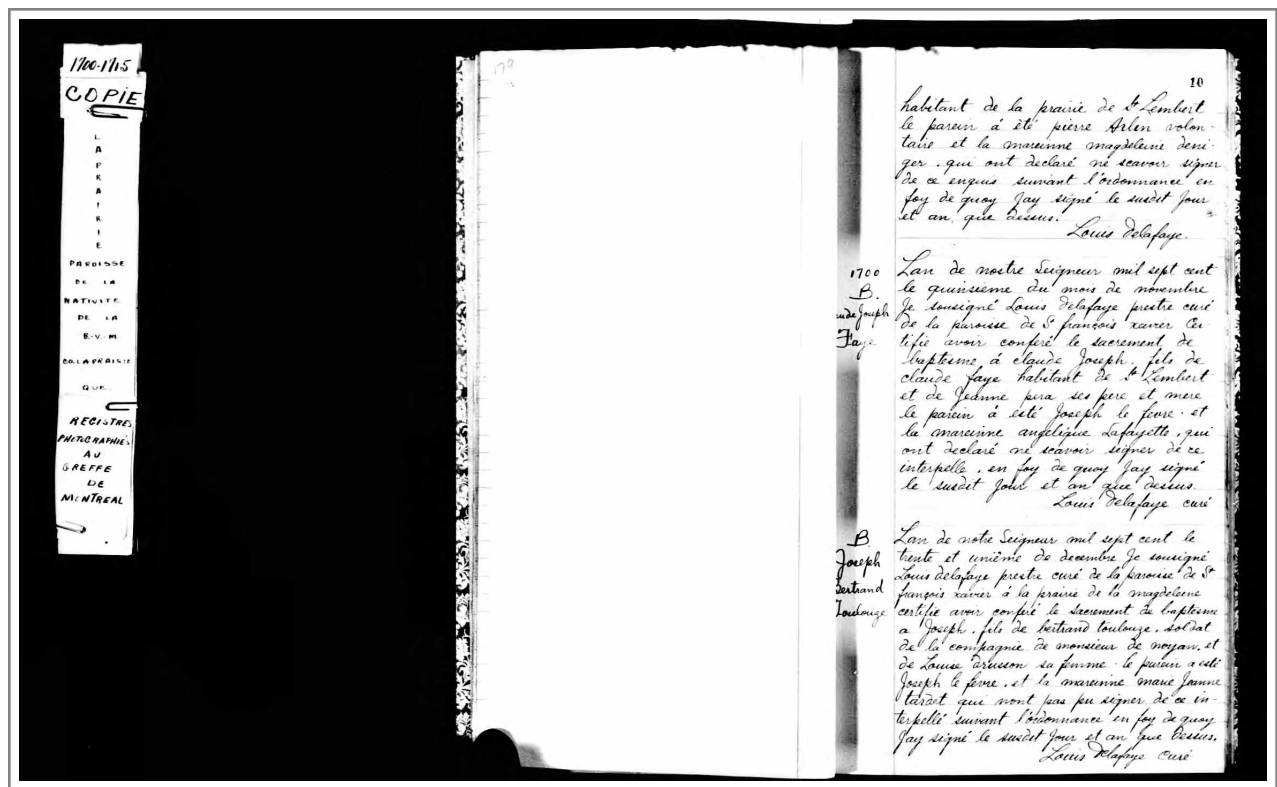 1700-1715
COPIE
LAPRAIRIE
PAROISSE
DE LA
NATIVITE
DE LA
B.V.M.
CO. LAPRAIRIE
QUE.
REGISTRES
PHOTOGRAPHIÉS
AU
GREFFE
DE
MONTREAL
179
10
habitant de la prairie de St Lembert
le parein á été pierre Arlen volon-
taire et la mareinne magdeleine deni-
ger, qui ont declaré ne scavoir signer
de ce enquis suivant l'ordonnance en
foy de quoy Jay signé le susdit Jour
et an, que dessus.
Louis Delafaye.
1700
B.
ude Joseph
Faye
Lan de nostre Seigneur mil sept cent
le quinsieme du mois de novembre
Je sousigné Louis Delafaye prestre curé
de la paroisse de St françois xavier Cer
tifie avoir conferé le sacrement de
baptesme á claude Joseph, fils de
claude faye habitant de St Lembert
et de Jeanne pera ses pere et mere
le parein á esté Joseph le fevre. et
la mareinne angelique Lafayette, qui
ont declaré ne scavoir signer de ce
interpelle, en foy de quoy Jay signé
le susdit Jour et an que dessus.
Louis Delafaye curé
B.
Joseph
Bertrand
Toulouze
Lan de notre Seigneur mil sept cent le
trente et unième de decembre Je sousigné
Louis delafaye prestre curé de la paroisse de St
françois xavier á la prairie de la magdeleine
certifie avoir conferé le sacrement de baptesme
a Joseph, fils de bertrand toulouze, soldat
de la compagnie de monsieur de noyan, et
de Louise drusson sa femme. le parein a esté
Joseph le fevre, et la mareinne marie Jeanne
tardet qui nont pas pu signer de ce in-
terpellé suivant l'ordonnance en foy de quoy
Jay signé le susdit Jour et an que dessus.
Louis Delafaye curé